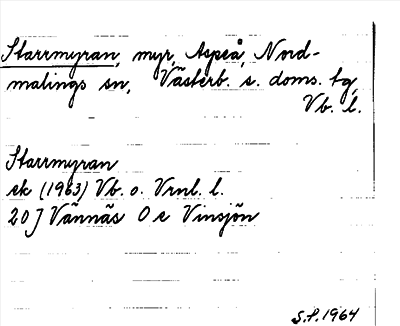 Starrmyran, myr, Aspeå, Nord-
malings sn, Västerb. s. doms. tg,
Vb. l.
Starrmyran
ek (1963) Vb. o. Vrml. l.
20 J Vännäs O c Vinsjön
S.S. 1964